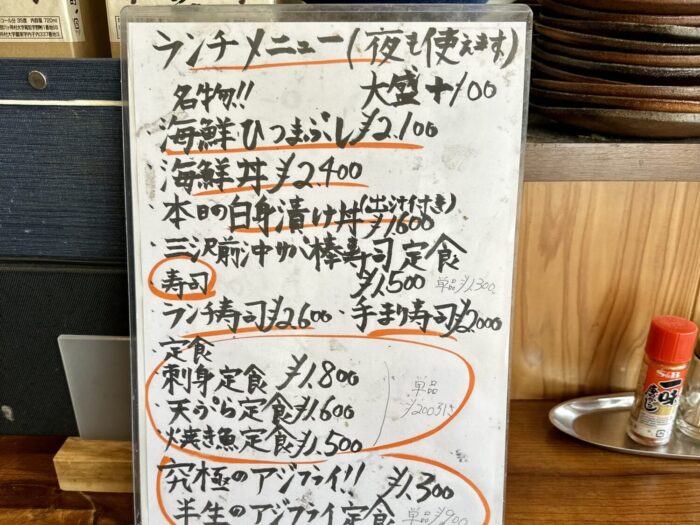 ランチメニュー(夜も使えます)
名物!! 大盛+100
海鮮ひつまぶし¥2.100
海鮮丼¥2.400
本日の白身漬け丼(出汁付き)¥1600
三沢前沖サバ棒寿司定食
¥1.500 単品¥1.300
寿司
ランチ寿司¥2600・手まり寿司¥2000
定食
刺身定食 ¥1.800
天ぷら定食¥1.600
焼き魚定食¥1.500
単品
¥200引き
究極のアジフライ!! ¥1.300
半生のアジフライ定食 単品¥900
S&B
一味
唐がらし